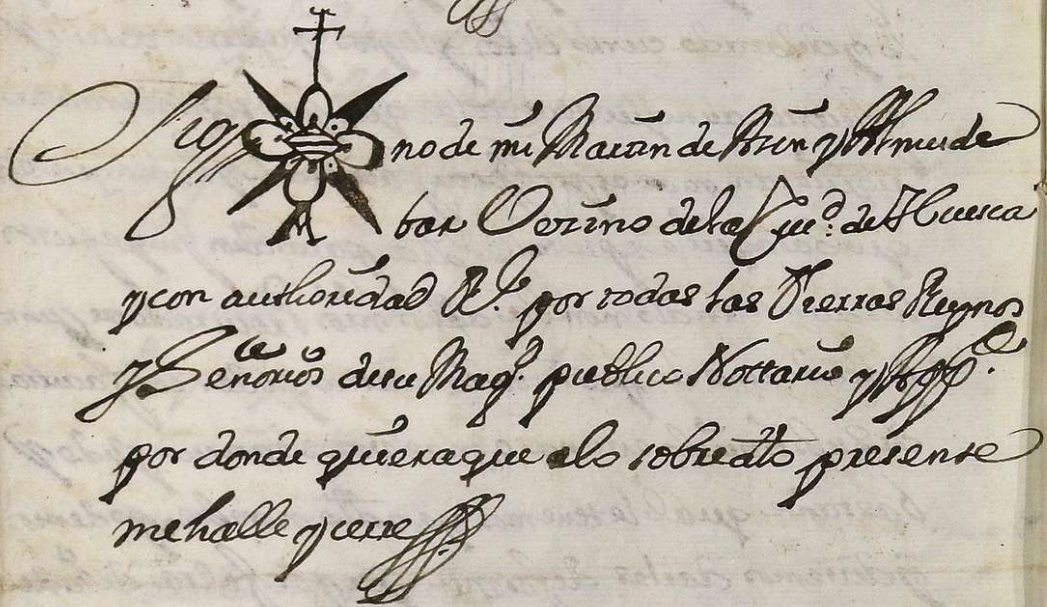 Sig no de mi Martin de Aren y Almude
bar Vezino de la Ciud. de Huesca
y con authoridad Rl. por todas las Tierras Reynos
y Señorios de su Magd. publico Nottario y
por donde quiera que a lo sobredho presente
me halle y cerre